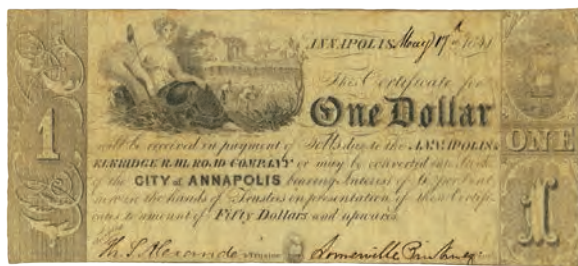 ANNAPOLIS, May 17th 1841
This Certificate for
One Dollar
1
ONE
1
will be received in payment of Tolls due to the ANNAPOLIS &
ELKRIDGE RAILROAD COMPANY or may be converted into Stock
of the CITY of ANNAPOLIS bearing Interest of 6 per Cent
now in the hands of Trustees on presentation of these Certifi-
cates to amount of Fifty Dollars and upwards.
Somerville Pinkney